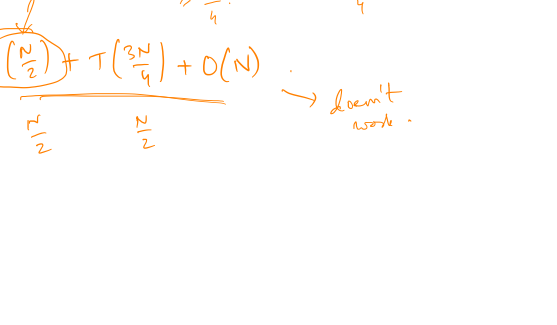 4 4
(N/2) + T(3N/4) + O(N)
→ doesn't
work.
N/2 N/2